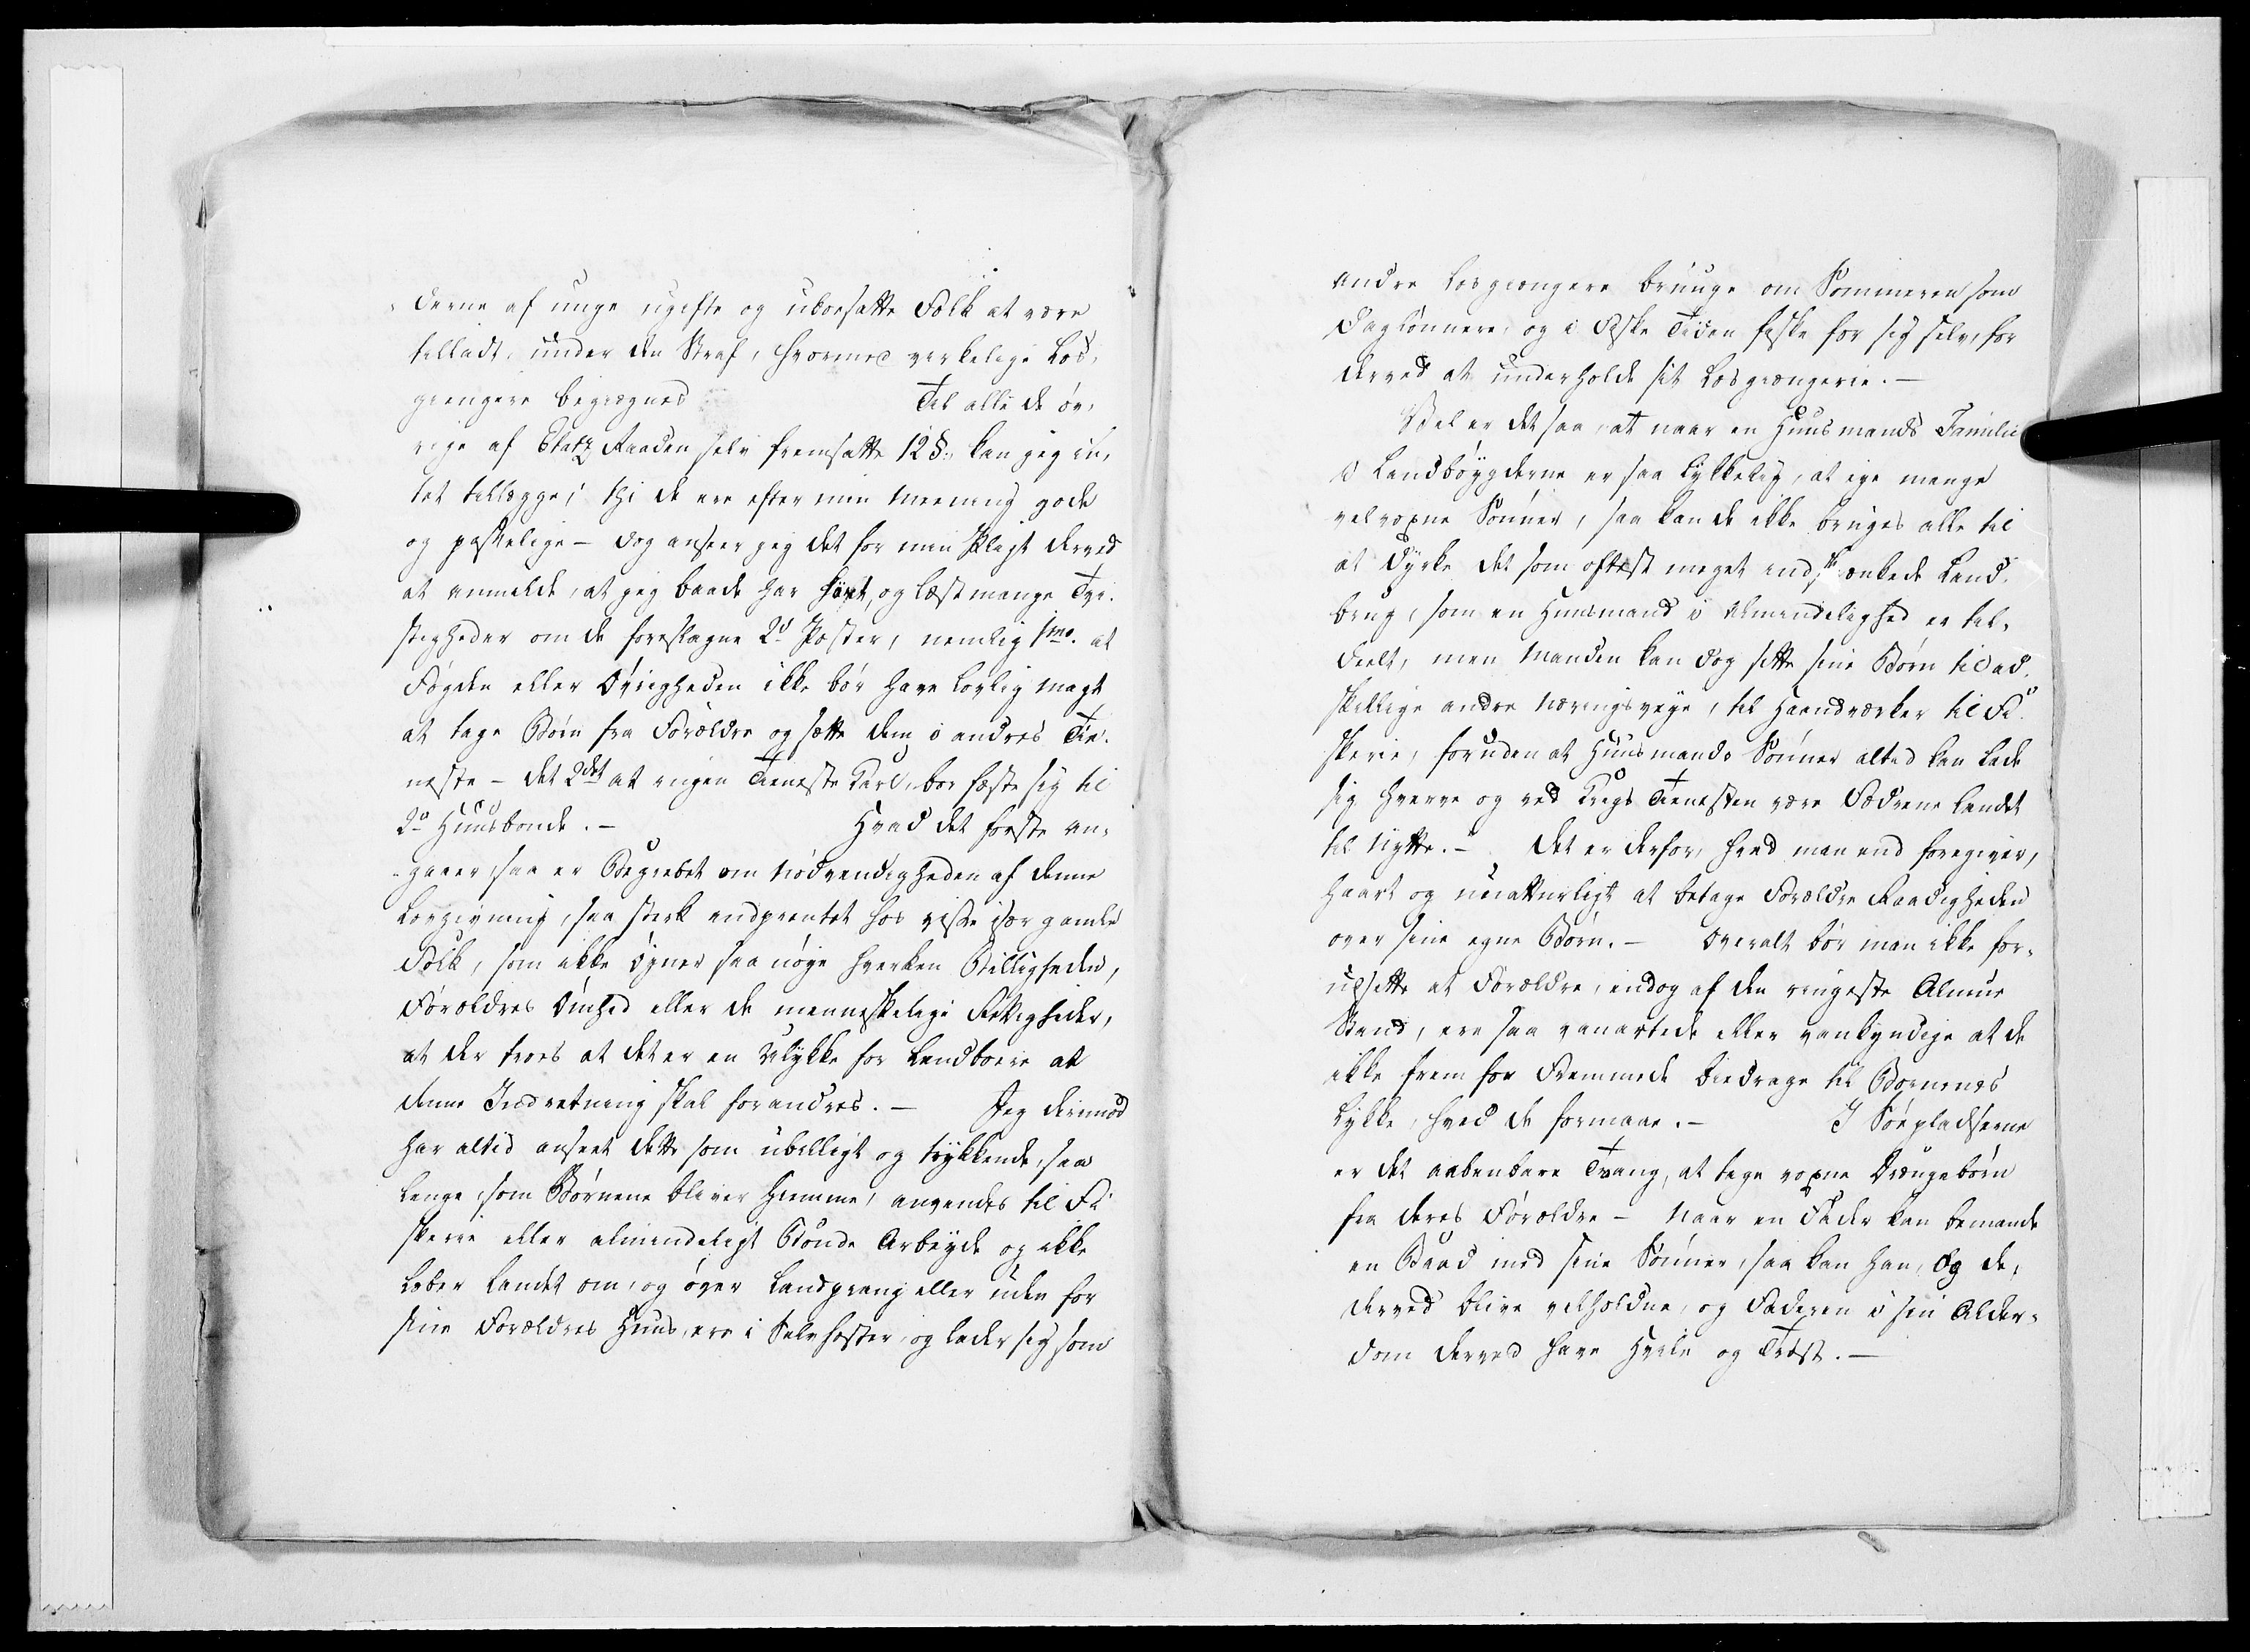 derne af unge ugifte og uboesatte Folk at være
tilladt, under den Straf, hvormed virkelige Løs-
gængere begiegnes Til alle de øv-
rige af Etatz Raaden selv fremsatte 12 §., kan jeg in-
tet tillægge; thi de ere efter min Meening gode
og passelige – dog anseer jeg det for min Pligt derved
at anmelde, at jeg baade har hørt, og læst mange Tvi-
stigheder om de foreslagne 2de Poster, nemlig 1mo. at
Fogden eller Øvrigheden ikke bør have lovlig Magt
at tage Børn fra Forældre og sætte dem i andres Tie-
neste – det 2det at ingen Tieneste Karl, bør fæste sig til
2de Huusbonde. – Hvad det første an-
gaaer, saa er Begrebet om Nødvendigheden af denne
Lovgivning, saa sterk indprentet hos visse især gamle
Folk, som ikke øyner saa nøye hverken Billigheden,
Forældres Ømhed eller de menneskelige Rettigheder,
at der troes at det er en Ulykke for Landboere at
denne Indretning skal forandres. – Jeg derimod
har altid anseet dette som ubilligt og trykkende, saa
længe, som Børnene bliver hiemme, anvendes til Fi-
skerie eller almindeligt Bonde Arbeyde og ikke
løber Landet om, og øver Landprang eller uden for
sine Forældres Huus, ere i Selvhester, og lader sig som
andre Løsgængere bruuge om Sommeren som
Daglønnere, og i Fiske Tiden fiske for sig selv, for
derved at underholde sit Løsgængerie. –
Vel er det saa, at naar en Huusmands Familie
i Landbøygderne er saa lykkelig, at eye mange
velvoxne Sønner, saa kan de ikke bruges alle til
at dyrke det som oftest meget indskrænkede Land-
brug, som en Huusmand i Almindelighed er til-
deelt, men Manden kan dog sette sine Børn til ad-
skillige andre Næringsveye, til Haandværker til Fi-
skerie, foruden at Huusmands Sønner altid kan lade
sig hverve og ved Krigs Tienesten være Fædrene Landet
til Nytte. – Det er derfor, hvad man end foregiver,
haart og unaturligt at betage Forældre Raadigheden
over sine egne Børn. – Overalt bør man ikke for-
udsette at Forældre, endog af den ringeste Almue
Stand, ere saa vanartede eller vankyndige at de
ikke frem for Fremmede biedrage til Børnenes
Lykke, hvad de formaae. – I Søepladserne
er det aabenbare Tvang, at tage voxne Drængebørn
fra deres Forældre – Naar en Fader kan bemande
en Baad med sine Sønner, saa kan han, og de,
derved blive velholdne, og Faderen i sin Alder-
dom derved have Hvile og Trøst. –